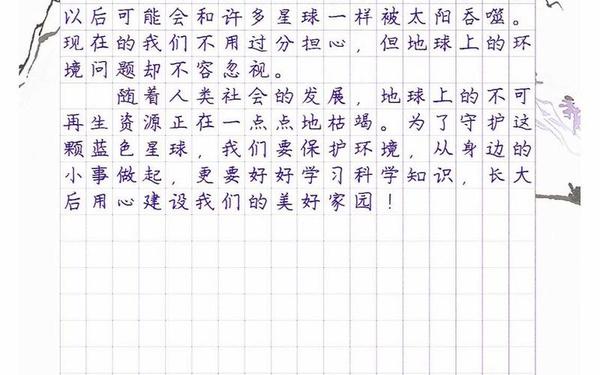 以后可能会和许多星球一样被太阳吞噬。
现在的我们不用过分担心，但地球上的环
境问题却不容忽视。
随着人类社会的发展，地球上的不可
再生资源正在一点点地枯竭。为了守护这
颗蓝色星球，我们要保护环境，从身边的
小事做起，更要好好学习科学知识，长大
后用心建设我们的美好家园！